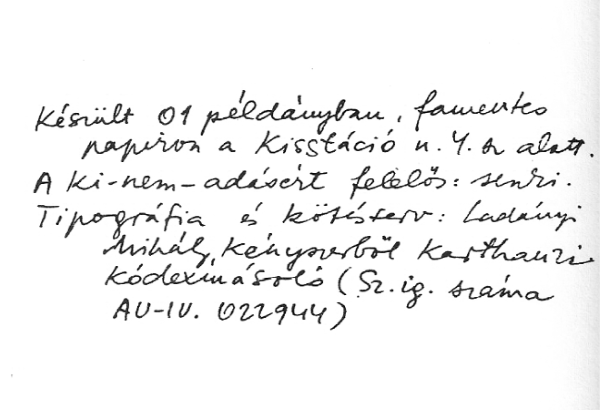 Készült 01 példányban, famentes
papiron a Kisstáció u. 4. sz alatt.
A ki-nem-adásért felelős: senki.
Tipográfia és kötésterv: Ladányi
Mihály, kényszerből Karthauzi
kódexmásoló (Sz. ig. száma
AU-IV. 022944)